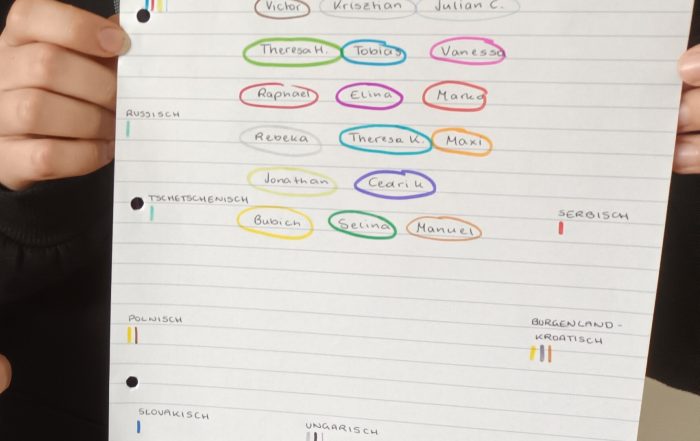 Victor Kriszhan Julian C.
Theresa H. Tobias Vanessa
Raphael Elina Marko
RUSSISCH
Rebeka Theresa K. Maxi
Jonathan Cedrik
TSCHETSCHENISCH
Bubich Selina Manuel
SERBISCH
POLNISCH
BURGENLAND-
KROATISCH
SLOVAKISCH
UNGARISCH